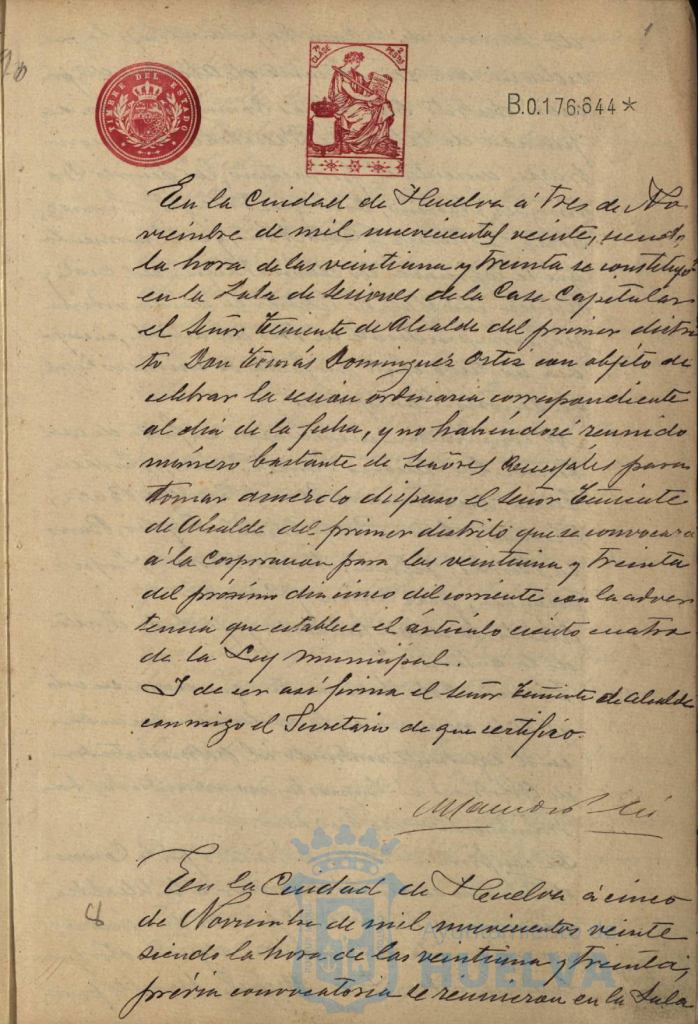 1
TIMBRE DEL ESTADO
7ª CLASE
2 PESETAS
B.0.176,644*
En la Ciudad de Huelva á tres de No-
viembre de mil novecientos veinte, siendo
la hora de las veintiuna y treinta se constituyó
en la Sala de Sesiones de la Casa Capitular
el Señor Teniente de Alcalde del primer distri
to Don Tomás Dominguez Ortiz con objeto de
celebrar la sesión ordinaria correspondiente
al día de la fecha, y no habiéndose reunido
número bastante de Señores Concejales para
tomar acuerdo dispuso el Señor Teniente
de Alcalde del primer distrito que se convocara
á la Corporación para las veintiuna y treinta
del próximo dia cinco del corriente con la adver
tencia que establece el artículo ciento cuatro
de la Ley municipal.
Y de ser así firma el Señor Teniente de Alcalde
conmigo el Secretario de que certifico.
En la Ciudad de Huelva á cinco
8
de Noviembre de mil novecientos veinte
siendo la hora de las veintiuna y treinta,
prévia convocatoria se reunieron en la Sala
HUELVA